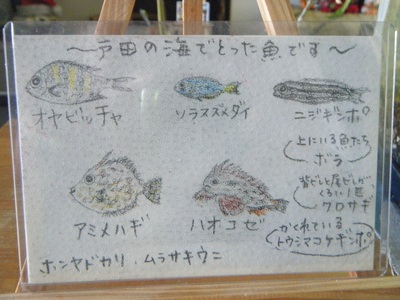 〜戸田の海でとった魚です〜
オヤビッチャ
ソラスズメダイ
ニジギンポ
上にいる魚たち
ボラ
背ビレと尾ビレが
くろい1匹
クロサギ
アミメハギ
ハオコゼ
かくれている
トウシマコケギンポ
ホンヤドカリ、ムラサキウニ